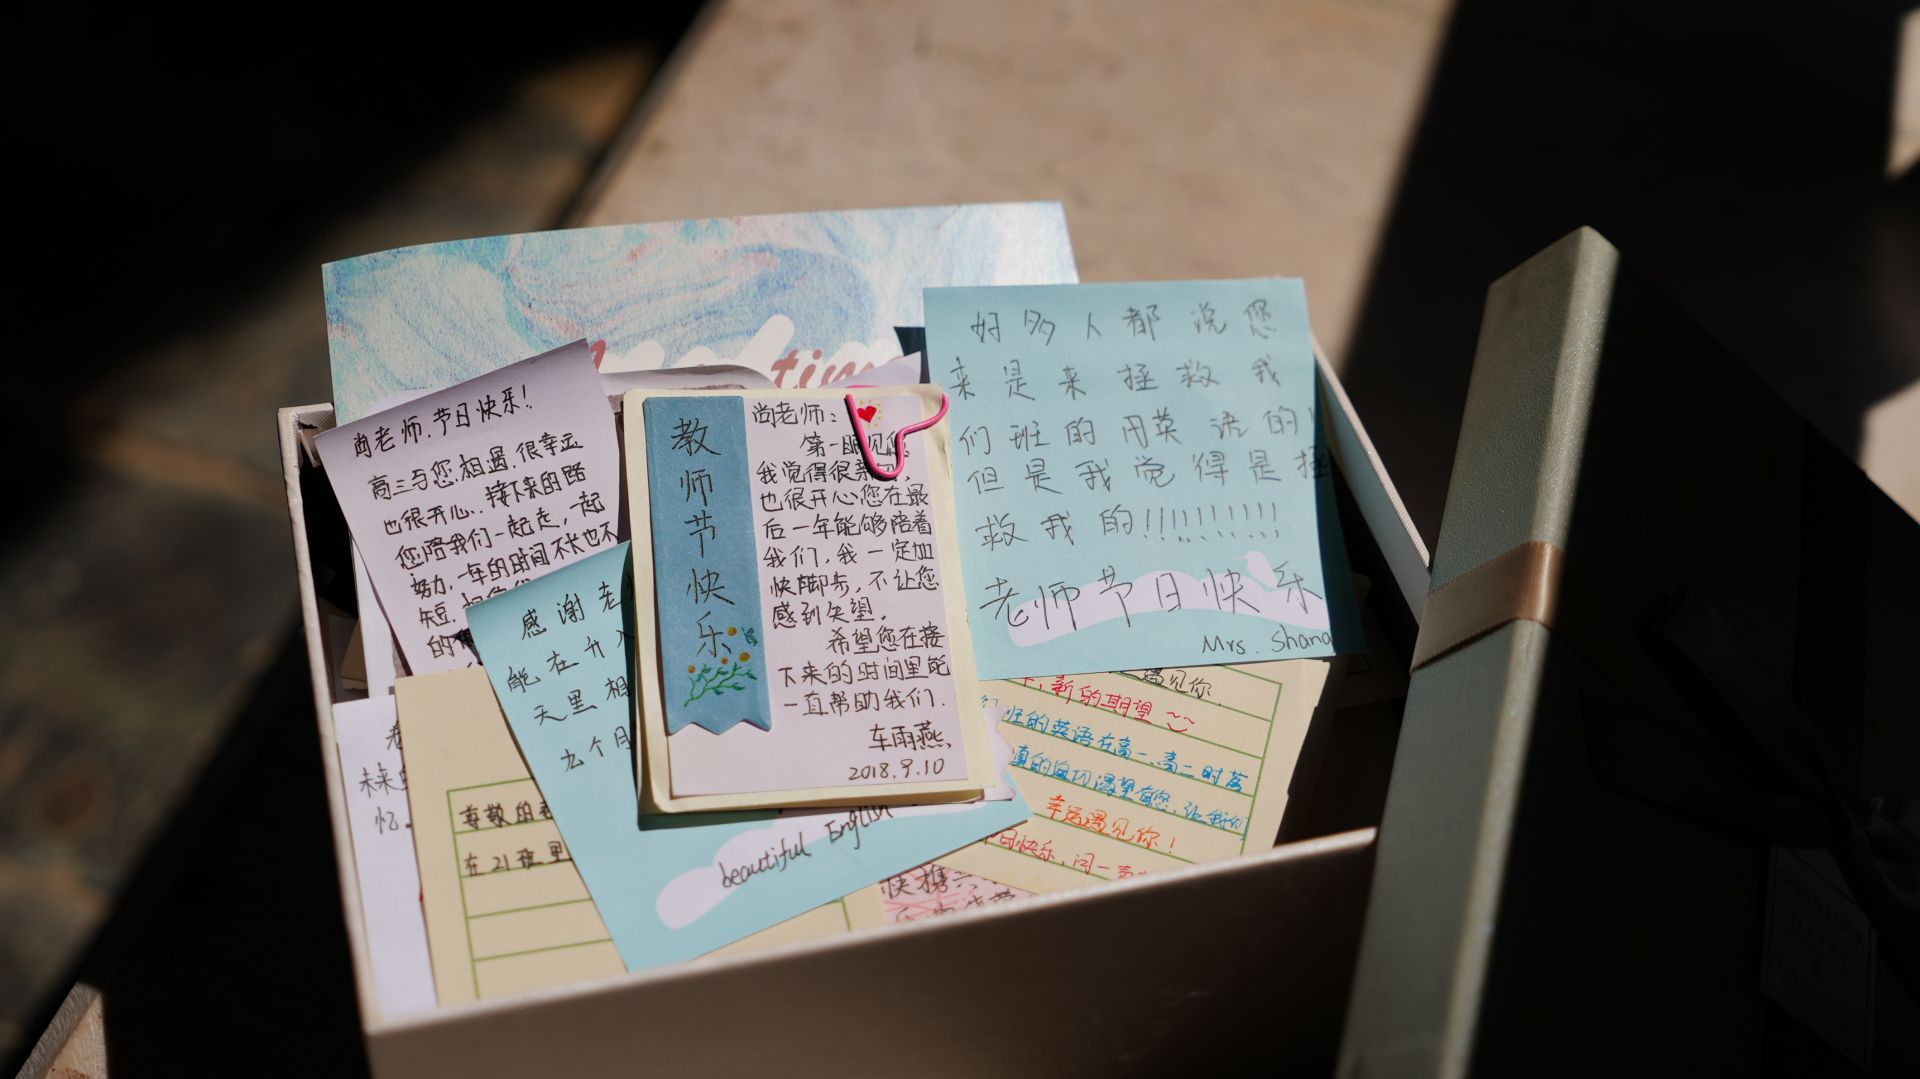 尚老师，节日快乐！
高三与您相遇，很幸运
也很开心，接下来的路
您陪我们一起走，一起
努力，一年的时间不长也不
短，相信
的
感谢老
能在升入
天里相
九个月
beautiful English
教师节快乐
尚老师：
第一眼见您
我觉得很亲切，
也很开心您在最
后一年能够陪着
我们，我一定加
快脚步，不让您
感到失望。
希望您在接
下来的时间里能
一直帮助我们.
车雨燕、
2018.9.10
好多人都说您
来是来拯救我
们班的用英语的
但是我觉得是拯
救我的!!!!!!!!!!
老师节日快乐
Mrs. Shang
遇见你
新的期望~~
班的英语在高一、高二时落
真的迫切渴望有您，让我们
幸运遇见你！
日快乐，
尊敬的老
在21班里
未来
忆。
快携
time